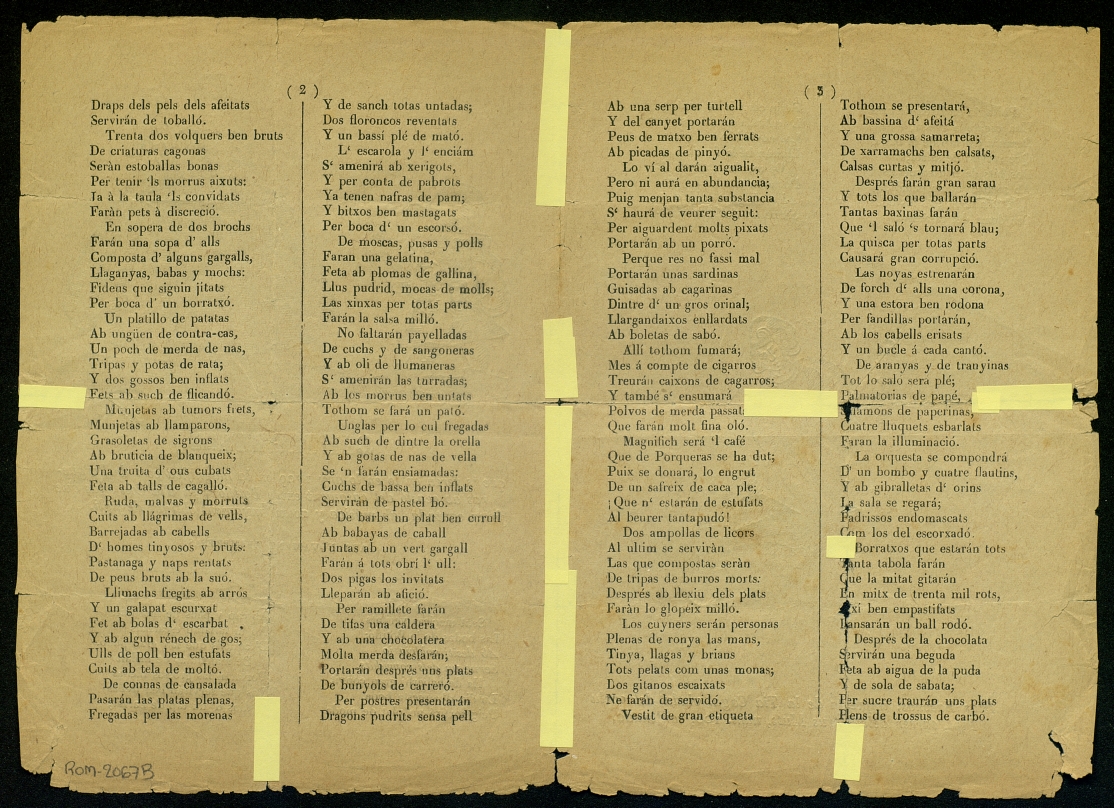 ( 2 )
Draps dels pels dels afeitats
Servirán de toballó.
Trenta dos volquers ben bruts
De criaturas cagonas
Seràn estoballas bonas
Per tenir ‘ls morrus aixuts:
Ja à la taula ‘ls convidats
Faràn pets à discreció.
En sopera de dos brochs
Farán una sopa d’ alls
Composta d’ alguns gargalls,
Llaganyas, babas y mochs:
Fideus que siguin jitats
Per boca d’ un borratxó.
Un platillo de patatas
Ab ungüen de contra-cas,
Un poch de merda de nas,
Tripas y potas de rata;
Y dos gossos ben inflats
Fets ab such de flicandó.
Munjetas ab tumors frets,
Munjetas ab llamparons,
Grasoletas de sigrons
Ab bruticia de blanqueix;
Una truita d’ ous cubats
Feta ab talls de cagalló.
Ruda, malvas y morruts
Cuits ab llágrimas de vells,
Barrejadas ab cabells
D‘ homes tinyosos y bruts:
Pastanaga y naps rentats
De peus bruts ab la suó.
Llimachs fregits ab arrós
Y un galapat escurxat
Fet ab bolas d‘ escarbat
Y ab algun rénech de gos;
Ulls de poll ben estufats
Cuits ab tela de moltó.
De connas de cansalada
Pasarán las platas plenas,
Fregadas per las morenas
Y de sanch totas untadas;
Dos floroncos reventats
Y un bassi plé de mató.
L‘ escarola y l‘ enciám
S‘ amenirá ab xerigots,
Y per conta de pabrots
Ya tenen nafras de pam;
Y bitxos ben mastagats
Per boca d‘ un escorsó.
De moscas, pusas y polls
Faran una gelatina,
Feta ab plomas de gallina,
Llus pudrid, mocas de molls;
Las xinxas per totas parts
Farán la salsa milló.
No faltarán payelladas
De cuchs y de sangoneras
Y ab oli de llumaneras
S‘ amenirán las torradas;
Ab los morrus ben untats
Tothom se fará un pató.
Unglas per lo cul fregadas
Ab such de dintre la orella
Y ab gotas de nas de vella
Se ‘n farán ensiamadas:
Cuchs de bassa ben inflats
Servirán de pastel bó.
De barbs un plat ben curull
Ab babayas de caball
Juntas ab un vert gargall
Farán á tots obrí l‘ ull:
Dos pigas los invitats
Lleparán ab afició.
Per ramillete farán
De tifas una caldera
Y ab una chocolatera
Molta merda desfarán;
Portarán després uns plats
De bunyols de carreró.
Per postres presentarán
Dragons pudrits sensa pell
( 3 )
Ab una serp per turtell
Y del canyet portarán
Peus de matxo ben ferrats
Ab picadas de pinyó.
Lo ví al darán aigualit,
Pero ni aurá en abundancia;
Puig menjan tanta substancia
S‘ haurá de veurer seguit:
Per aiguardent molts pixats
Portarán ab un porró.
Perque res no fassi mal
Portarán unas sardinas
Guisadas ab cagarinas
Dintre d‘ un gros orinal;
Llargandaixos enllardats
Ab boletas de sabó.
Allí tothom fumará;
Mes á compte de cigarros
Treurán caixons de cagarros;
Y també s‘ ensumará
Polvos de merda passat
Que farán molt fina oló.
Magnifich será ‘l café
Que de Porqueras se ha dut;
Puix se donará, lo engrut
De un safreix de caca ple;
¡Que n‘ estarán de estufats
Al beurer tantapudó!
Dos ampollas de licors
Al ultim se serviràn
Las que compostas seràn
De tripas de burros morts:
Després ab llexiu dels plats
Faràn lo glopeix milló.
Los cuyners serán personas
Plenas de ronya las mans,
Tinya, llagas y brians
Tots pelats com unas monas;
Los gitanos escaixats
Ne farán de servidó.
Vestit de gran etiqueta
Tothom se presentará,
Ab bassina d‘ afeitá
Y una grossa samarreta;
De xarramachs ben calsats,
Calsas curtas y mitjó.
Després farán gran sarau
Y tots los que ballarán
Tantas baxinas farán
Que ‘l saló ‘s tornará blau;
La quisca per totas parts
Causará gran corrupció.
Las noyas estrenarán
De forch d‘ alls una corona,
Y una estora ben rodona
Per fandillas portàrán,
Ab los cabells erisats
Y un bucle á cada cantó.
De aranyas y de tranyinas
Tot lo saló será plé;
Palmatorias de papé,
Salamons de paperinas,
Cuatre lluquets esbarlats
Faran la illuminació.
La orquesta se compondrá
D‘ un bombo y cuatre flautins,
Y ab gibralletas d‘ orins
La sala se regará;
Padrissos endomascats
Com los del escorxadó.
Borratxos que estarán tots
Tanta tabola farán
Que la mitat gitarán
En mitx de trenta mil rots,
Axi ben empastifats
Dansarán un ball rodó.
Després de la chocolata
Servirán una beguda
Feta ab aigua de la puda
Y de sola de sabata;
Per sucre traurán uns plats
Plens de trossus de carbó.
ROM-2067B